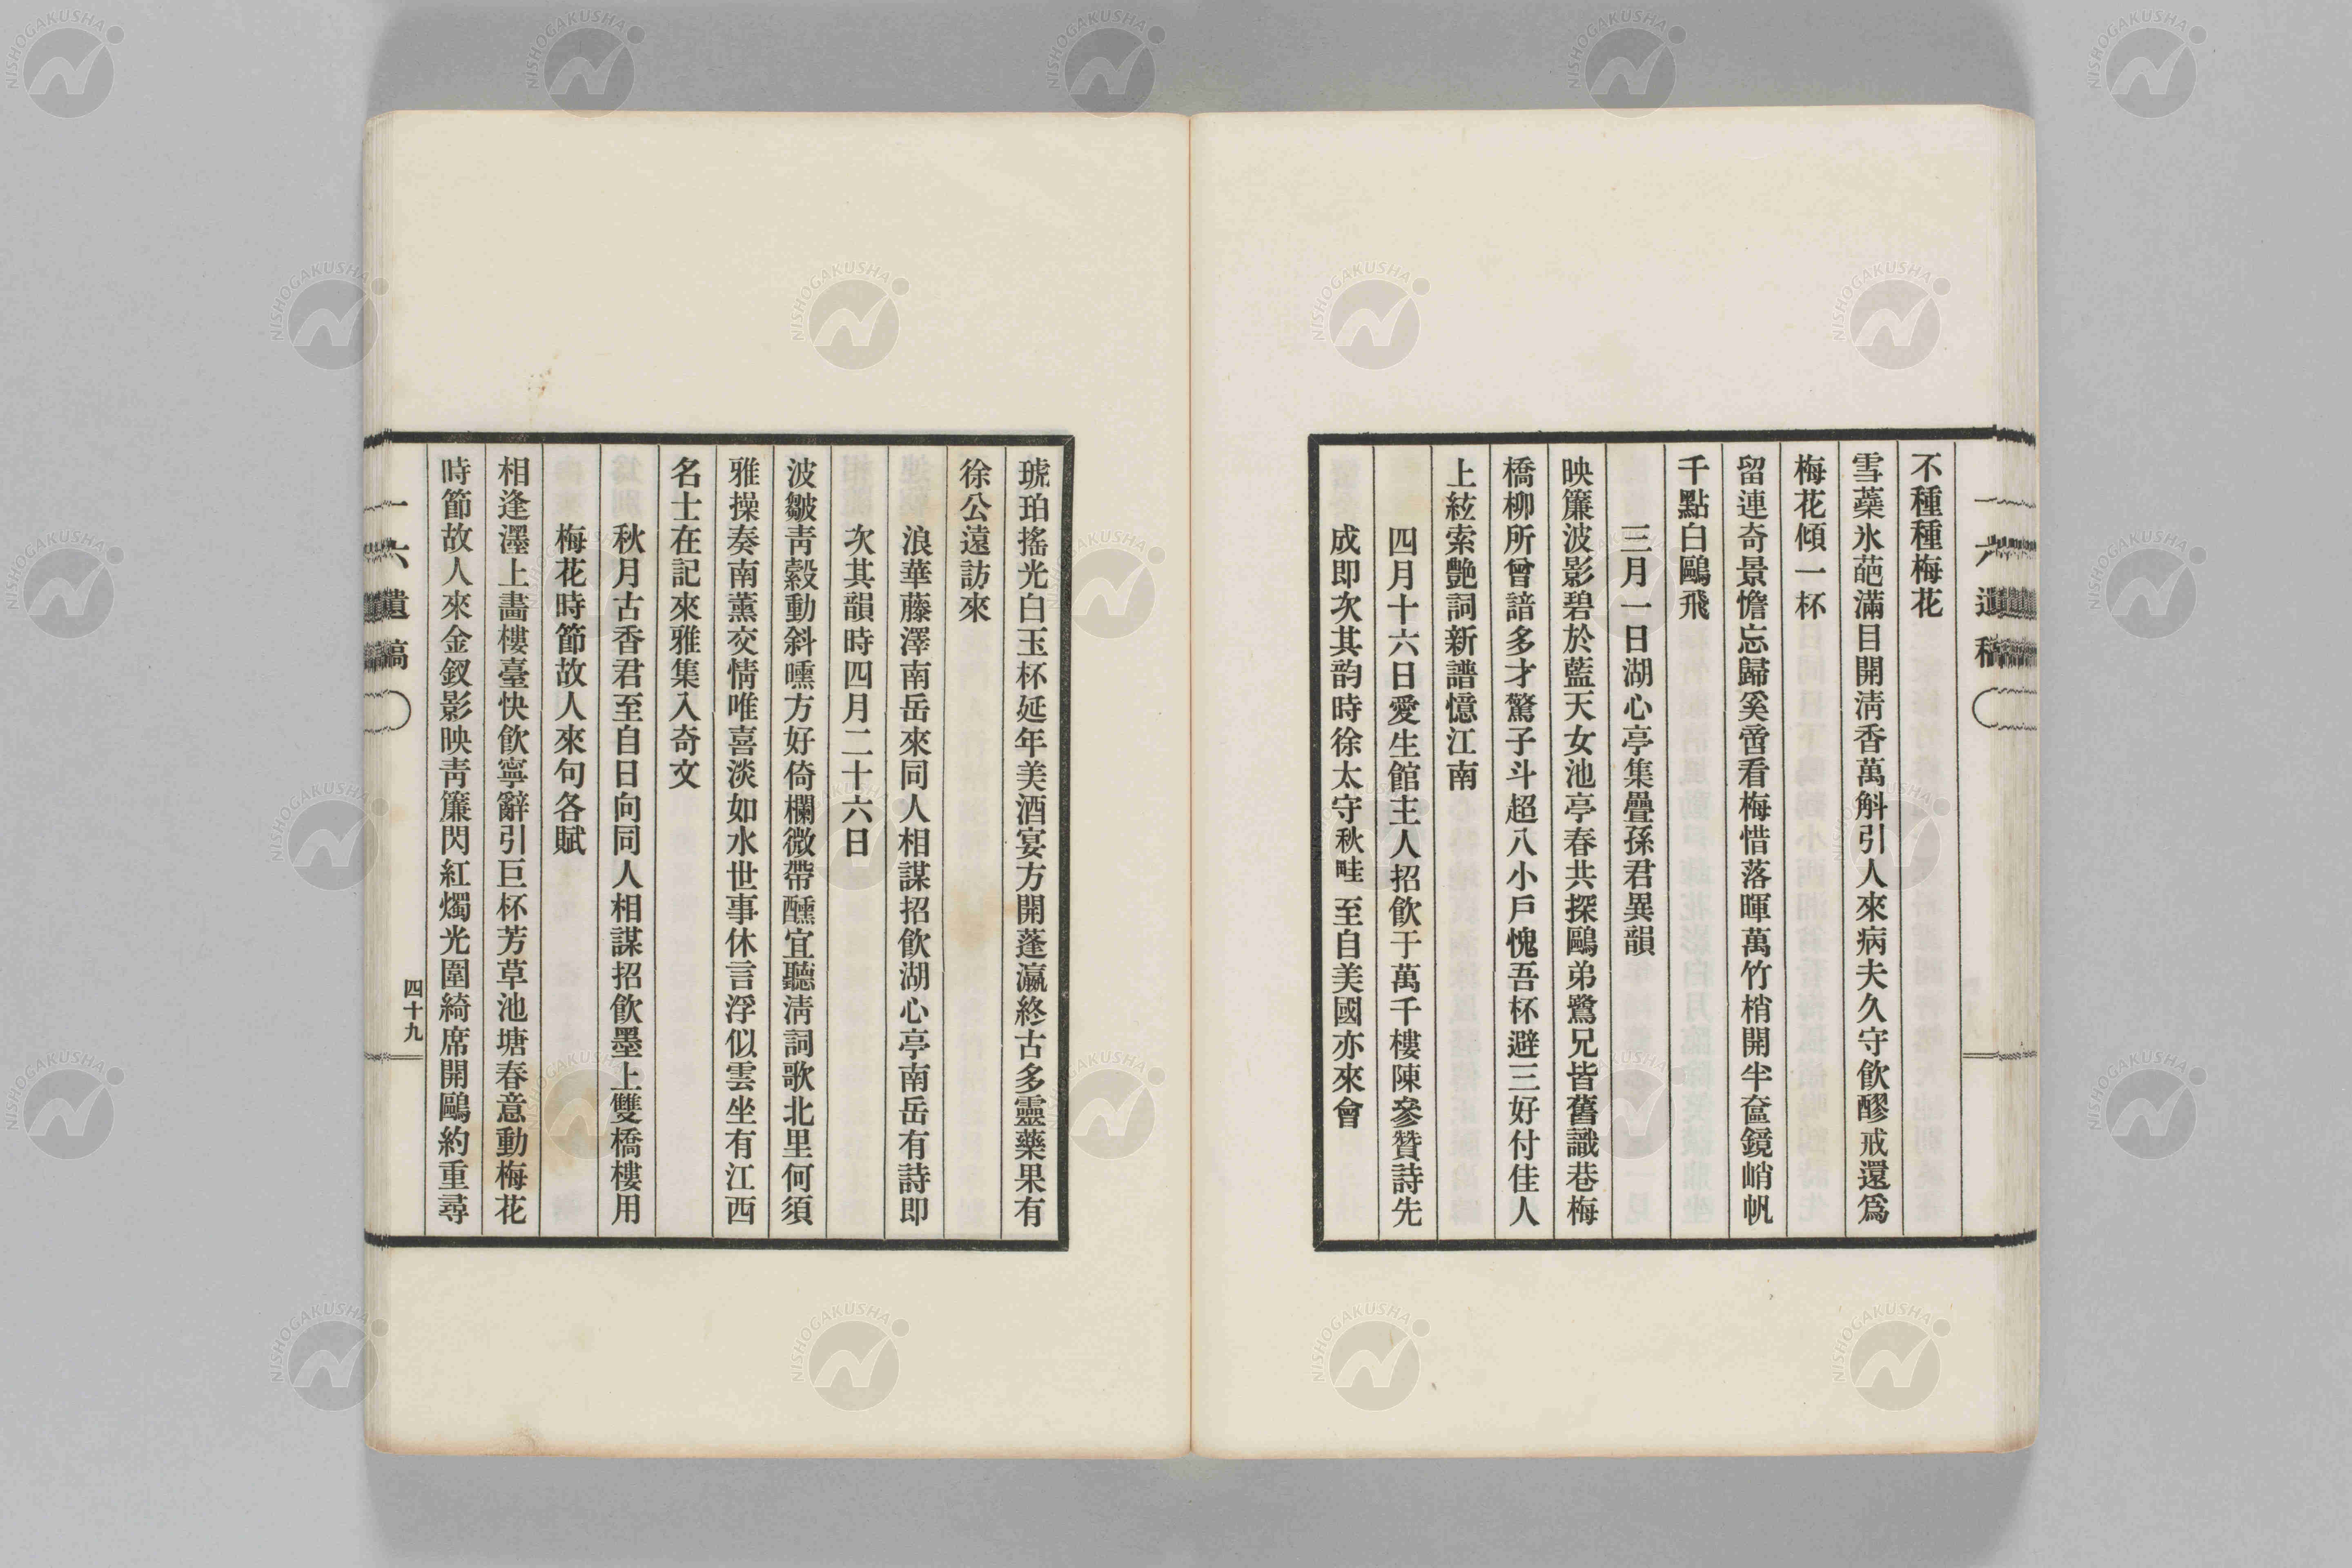 一六遺稿
不種種梅花
雪蘂氷葩滿目開淸香萬斛引人來病夫久守飮醪戒還爲
梅花傾一杯
留連奇景憺忘歸奚啻看梅惜落暉萬竹梢開半奩鏡峭帆
千點白鷗飛
三月一日湖心亭集疊孫君異韻
映簾波影碧於藍天女池亭春共探鷗弟鷺兄皆舊識巷梅
橋柳所曾諳多才驚子斗超八小戶愧吾杯避三好付佳人
上絃索艷詞新譜憶江南
四月十六日愛生館主人招飮于萬千樓陳參贊詩先
成即次其韵時徐太守秋畦至自美國亦來會
琥珀搖光白玉杯延年美酒宴方開蓬瀛終古多靈藥果有
徐公遠訪來
浪華藤澤南岳來同人相謀招飮湖心亭南岳有詩即
次其韻時四月二十六日
波皺靑縠動斜曛方好倚欄微帶醺宜聽淸詞歌北里何須
雅操奏南薰交情唯喜淡如水世事休言浮似雲坐有江西
名士在記來雅集入奇文
秋月古香君至自日向同人相謀招飮墨上雙橋樓用
梅花時節故人來句各賦
相逢濹上畵樓臺快飮寧辭引巨杯芳草池塘春意動梅花
時節故人來金釵影映靑簾閃紅燭光圍綺席開鷗約重尋
一六遺稿
四十九
NISHOGAKUSHA